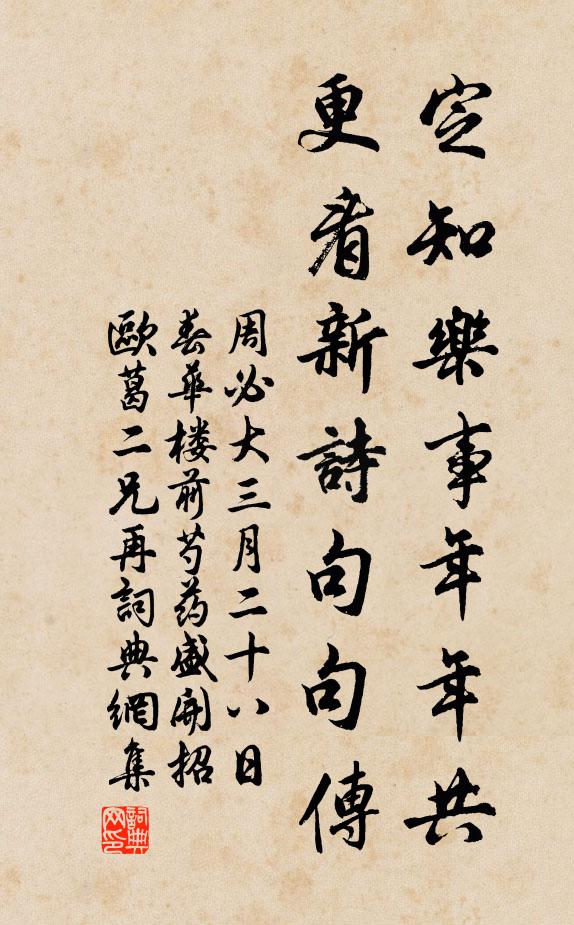 定知樂事年年共
更看新詩句句傳
周必大三月二十八日
春華楼前芍药盛開招
歐葛二兄再詞典網集
詞典网印